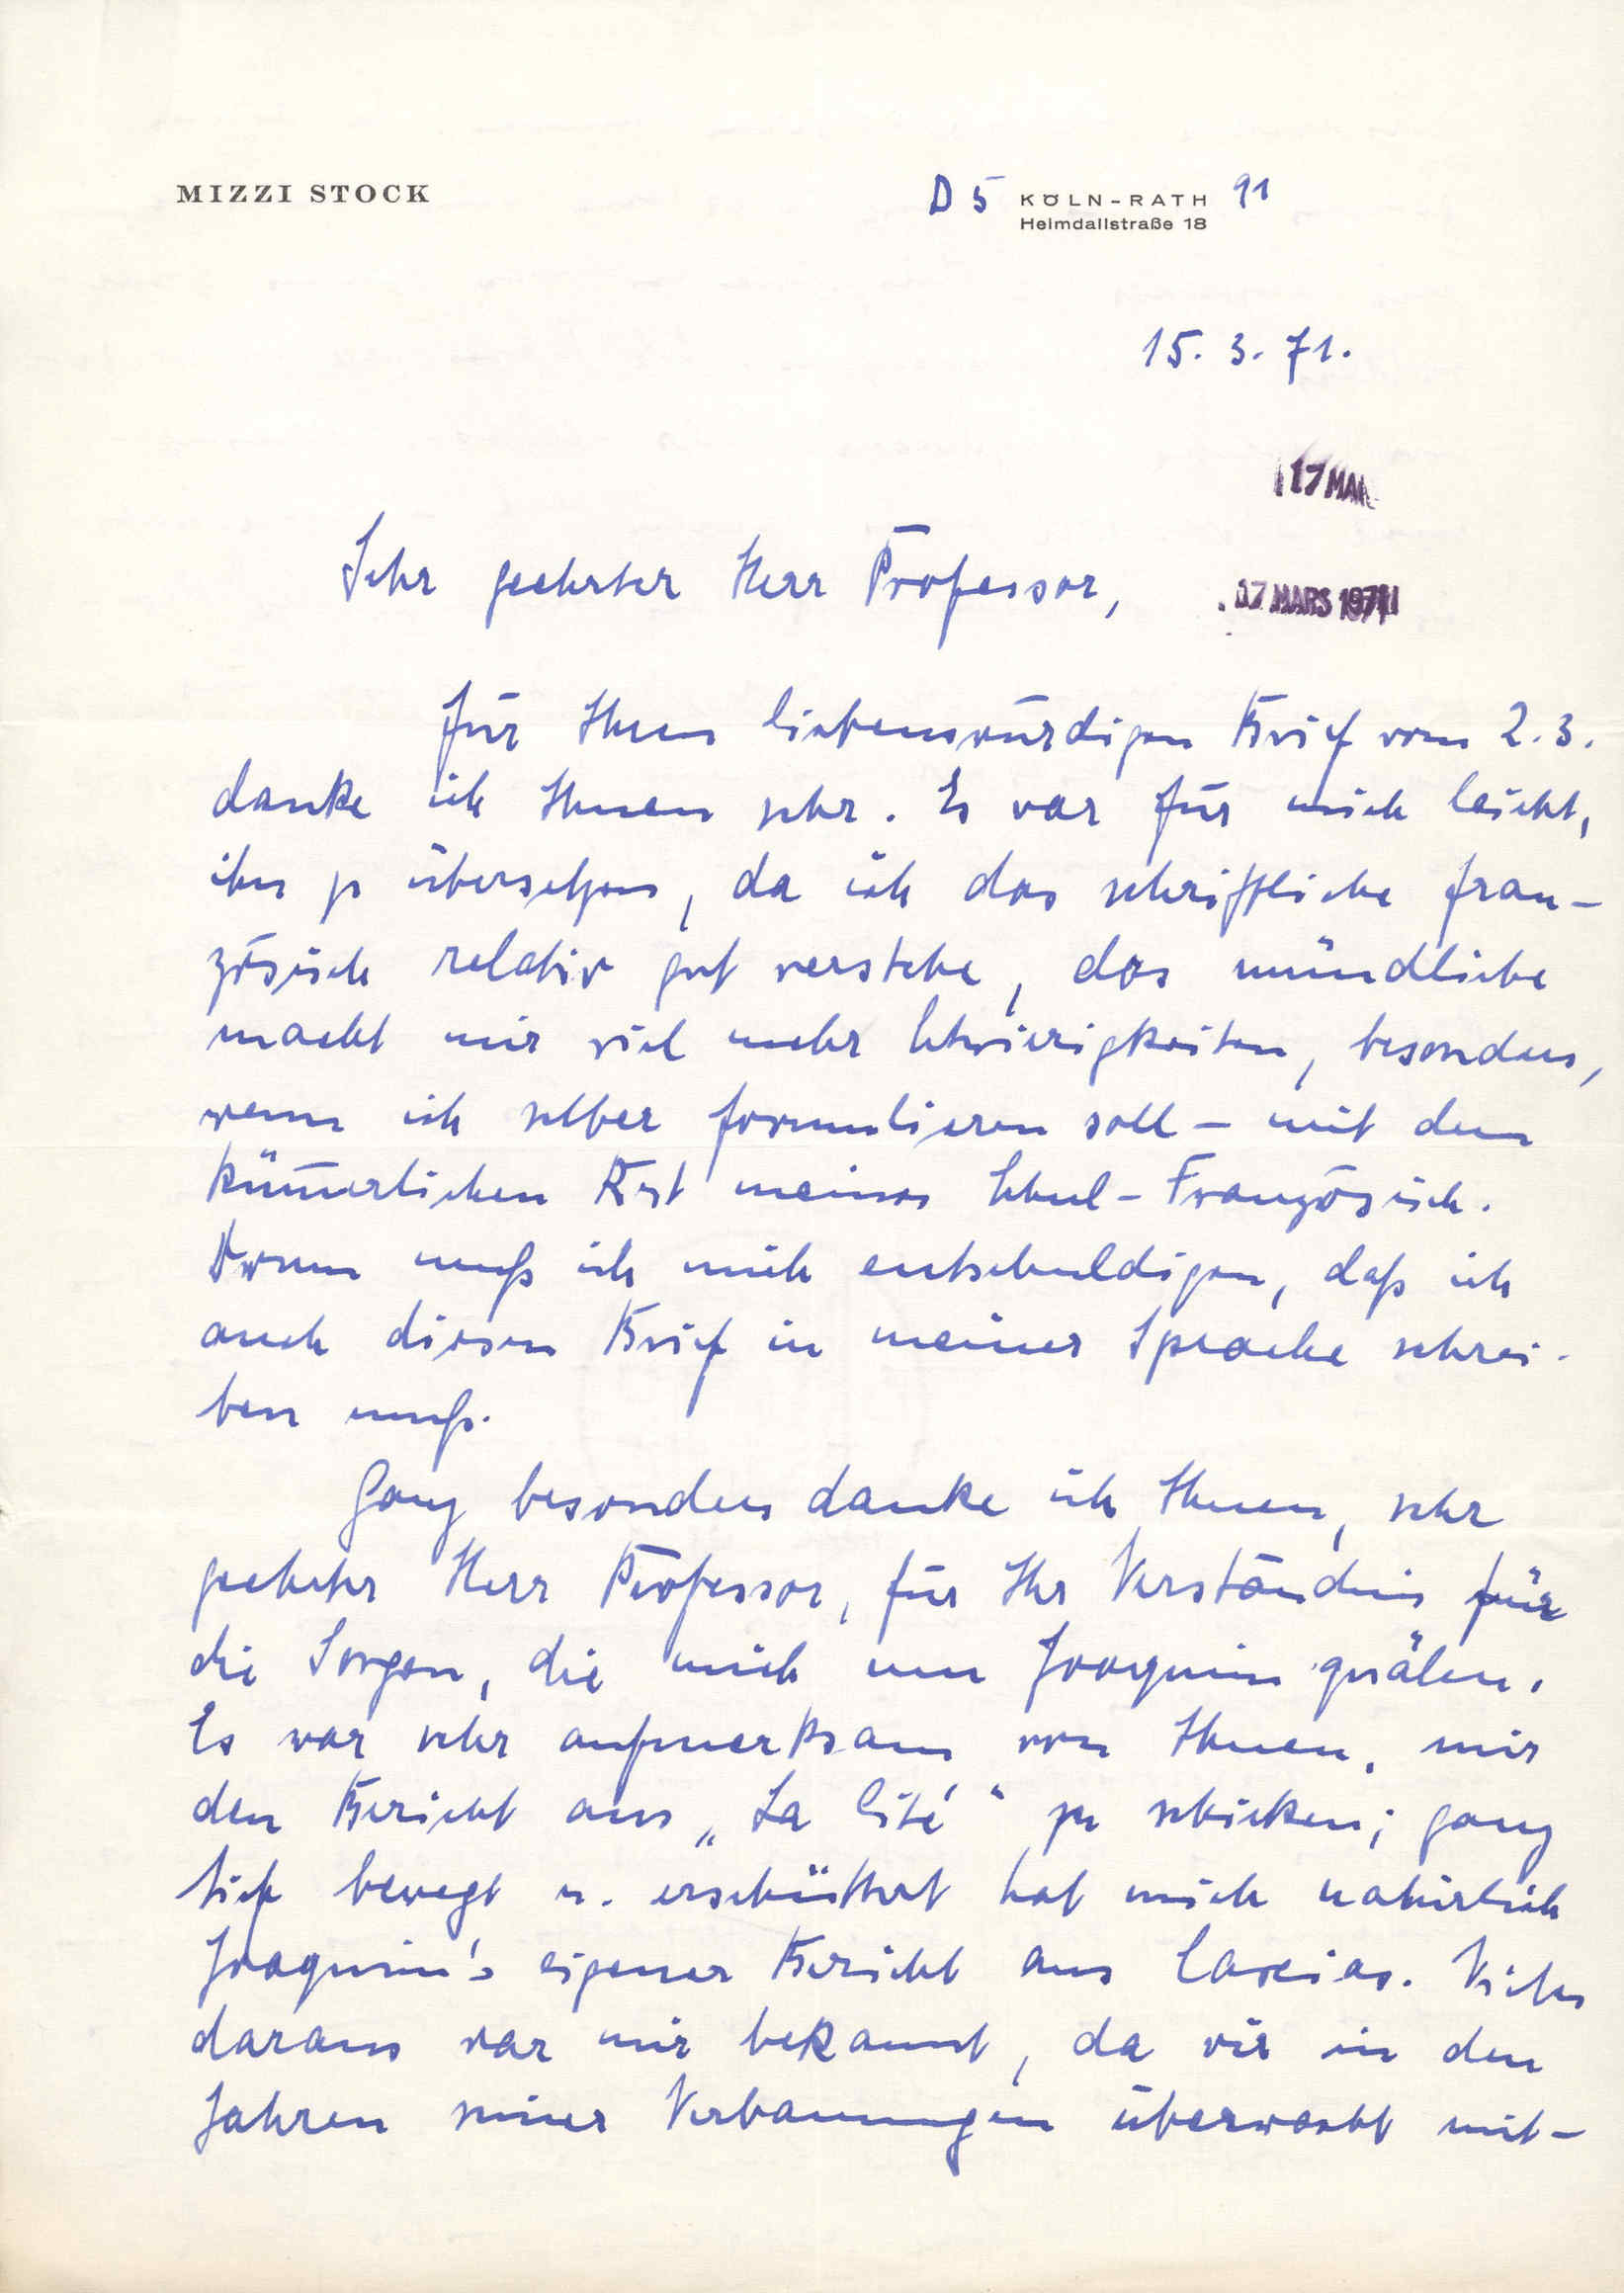 MIZZI STOCK
D 5 KÖLN-RATH 91
Heimdallstraße 18
15. 3. 71.
17 MAR
17 MARS 1971
Sehr geehrter Herr Professor,
für Ihren liebenswürdigen Brief vom 2.3.
danke ich Ihnen sehr. Es war für mich leicht,
ihn zu übersetzen, da ich das schriftliche fran-
zösisch relativ gut verstehe, das mündliche
macht mir viel mehr Schwierigkeiten, besonders,
wenn ich selber formulieren soll – mit dem
kümmerlichen Rest meines Schul-Französisch.
Drum muß ich mich entschuldigen, daß ich
auch diesen Brief in meiner Sprache schrei-
ben muß.
Ganz besonders danke ich Ihnen, sehr
geehrter Herr Professor, für Ihr Verständnis für
die Sorgen, die mich um Joaquim quälen.
Es war sehr aufmerksam von Ihnen, mir
den Bericht aus „La Cité" zu schicken; ganz
tief bewegt u. erschüttert hat mich natürlich
Joaquim's eigener Bericht aus Caxias. Vieles
daraus war mir bekannt, da wir in den
Jahren seiner Verbannungen überwacht mit-